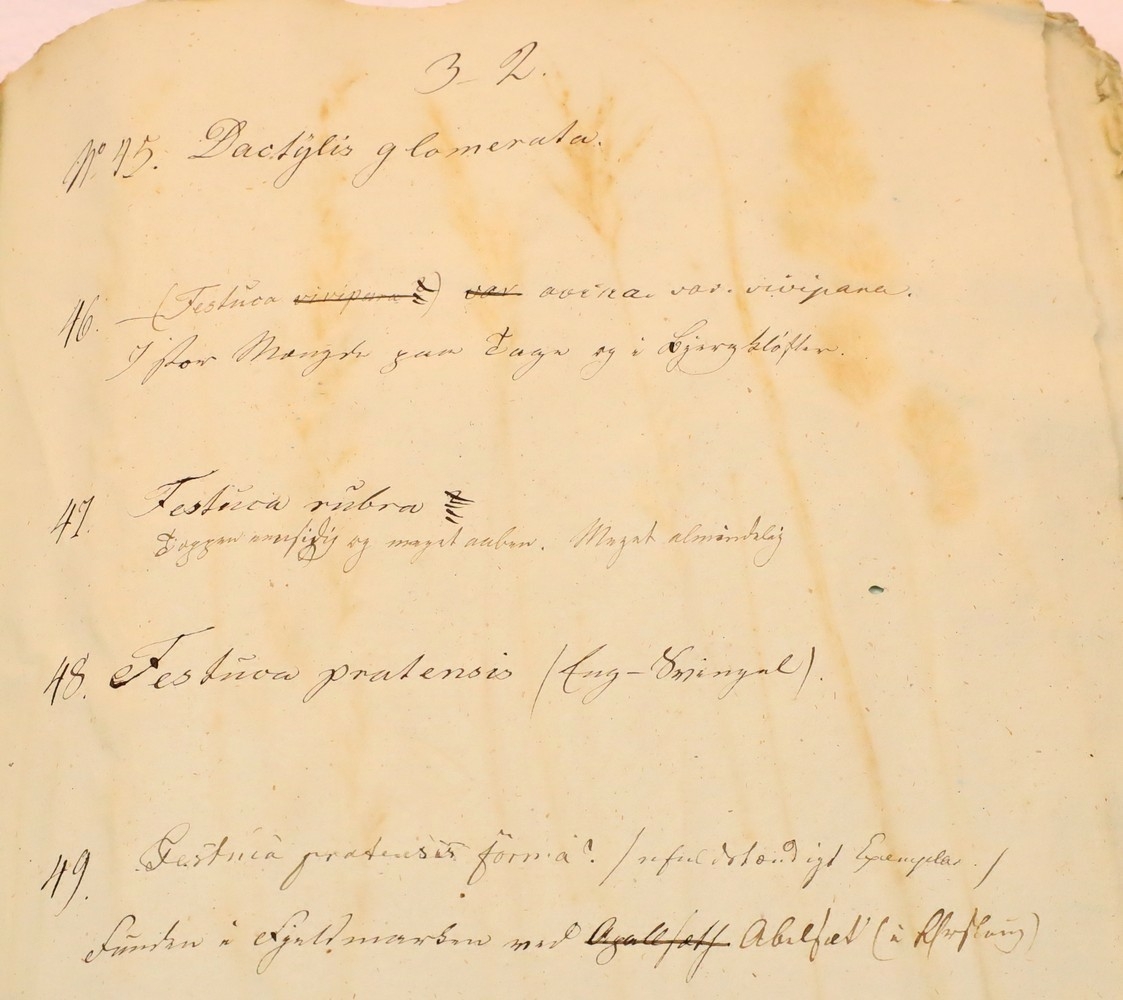 3-2.
No. 45. Dactylis glomerata.
46. (Festuca vivipara) var ovina. var. vivipara.
I stor Mængde paa Tage og i Bjergkløfter.
47. Festuca rubra
Toppen eensidig og meget aaben. Meget almindelig
48. Festuca pratensis (Eng-Svingel).
49. Festuca pratensis forma? / ufuldstændigt Exemplar. /
Funden i Fjeldmarken ved Abelsæt (i